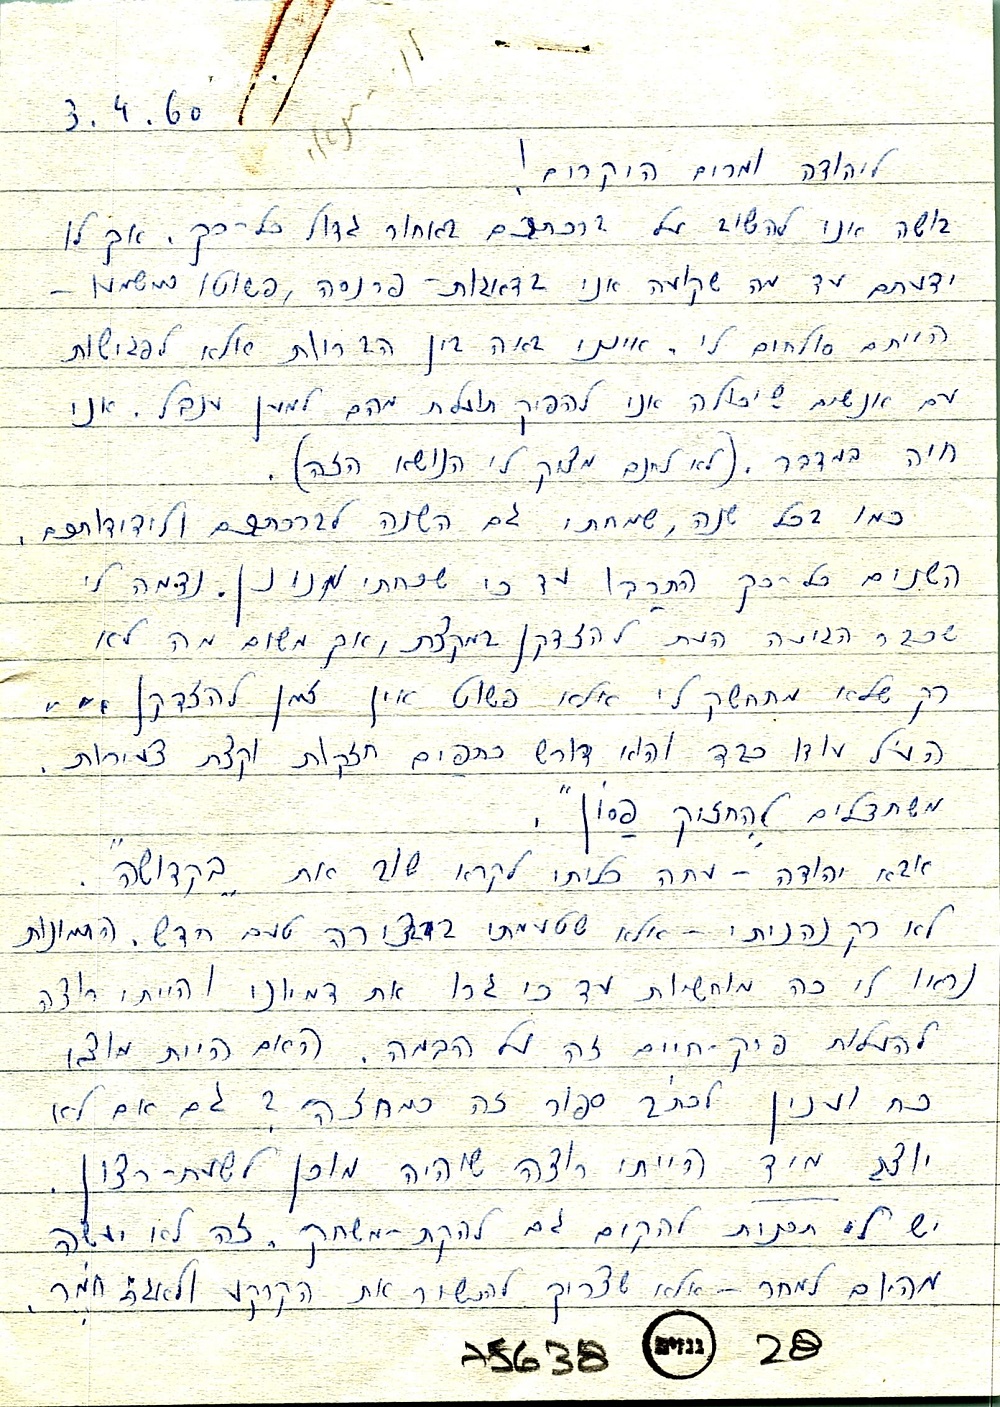 3.4.60
ליהודה ומרים היקרים!
בושה אני להשיב על ברכתכם באחור גדול כל-כך. אך לו
ידעתם עד מה שקועה אני בדאגות-פרנסה, פשוטו כמשמעו –
הייתם סולחים לי. אינני באה בין הבריות אלא לפגישות
עם אנשים שיכולה אני להפיק תועלת מהם למען ענבל. אני
חיה במדבר. (לא לחנם מציק לי הנושא הזה).
כמו בכל שנה, שמחתי גם השנה לברכתכם ולידידותכם.
השנים כל-כך התרבו עד כי שכחתי מנינן. נדמה לי
שכבר הגיעה העת להזדקן במקצת, אך משום מה לא
רק שלא מתחשק לי אלא פשוט אין זמן להזדקן...
העול עודו כבד והוא דורש כתפים חזקות וקצת צעירות.
משתדלים "להחזיק פסון".
אבא יהודה – עתה כליתי לקרא שוב את "בקדושה".
לא רק נהניתי – אלא שטעמתי בצורה טעם חדש. התמונות
נראו לי כה מוחשיות עד כי גרו את דמיוני והייתי רוצה
להעלות פרק-חיים זה על הבמה. האם היית מוצא
כח וענין לכתב ספור זה כמחזה? גם אם לא
יוצג מיד הייתי רוצה שיהיה מוכן לשעת-רצון.
יש לי תכנית להקים גם להקת-משחק. זה לא יעשה
מהיום למחר – אלא שצריך להכשיר את הקרקע ולאגור חומר.
75638
גנזים
28